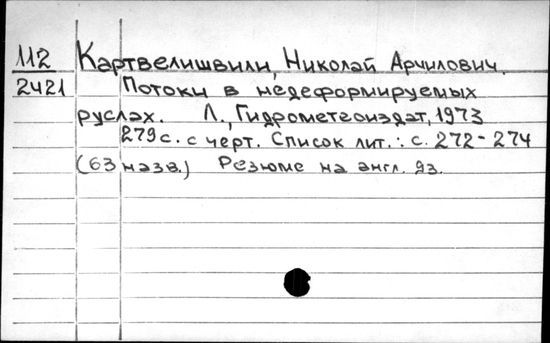 112 Картвелишвили, Николай Арчилович.
2421 Потоки в недеформируемых
руслах. Л., Гидрометеоиздат, 1973
279 с. с черт. Список лит.: с. 272-274
(63 назв.) Резюме на англ. яз.